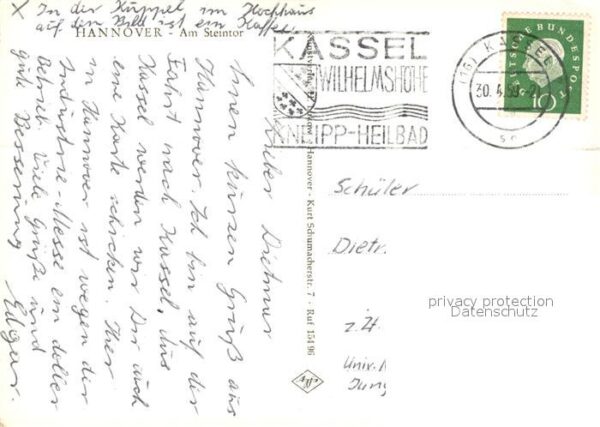 X In der Kuppel im Hochhaus
auf dem Bild ist ein Kaffee.
HANNOVER - Am Steintor
Lieber Dietmar
Einen kurzen Gruß aus
Hannover. Ich bin auf der
Fahrt nach Kassel. Aus
Kassel werden wir Dir auch
eine Karte schicken. Hier
in Hannover ist wegen der
Industrie-Messe ein doller
Betrieb. Viele Grüße und
gute Besserung
Edgar.
Hannover - Kurt Schumacherstr. 7 - Ruf 154 96
KASSEL
WILHELMSHÖHE
KNEIPP-HEILBAD
(16) KASSEL
30.4.59
DEUTSCHE BUNDESPOST
10
Schüler
Dietr.
privacy protection
Datenschutz
z. Zt.
Univ.
Jung